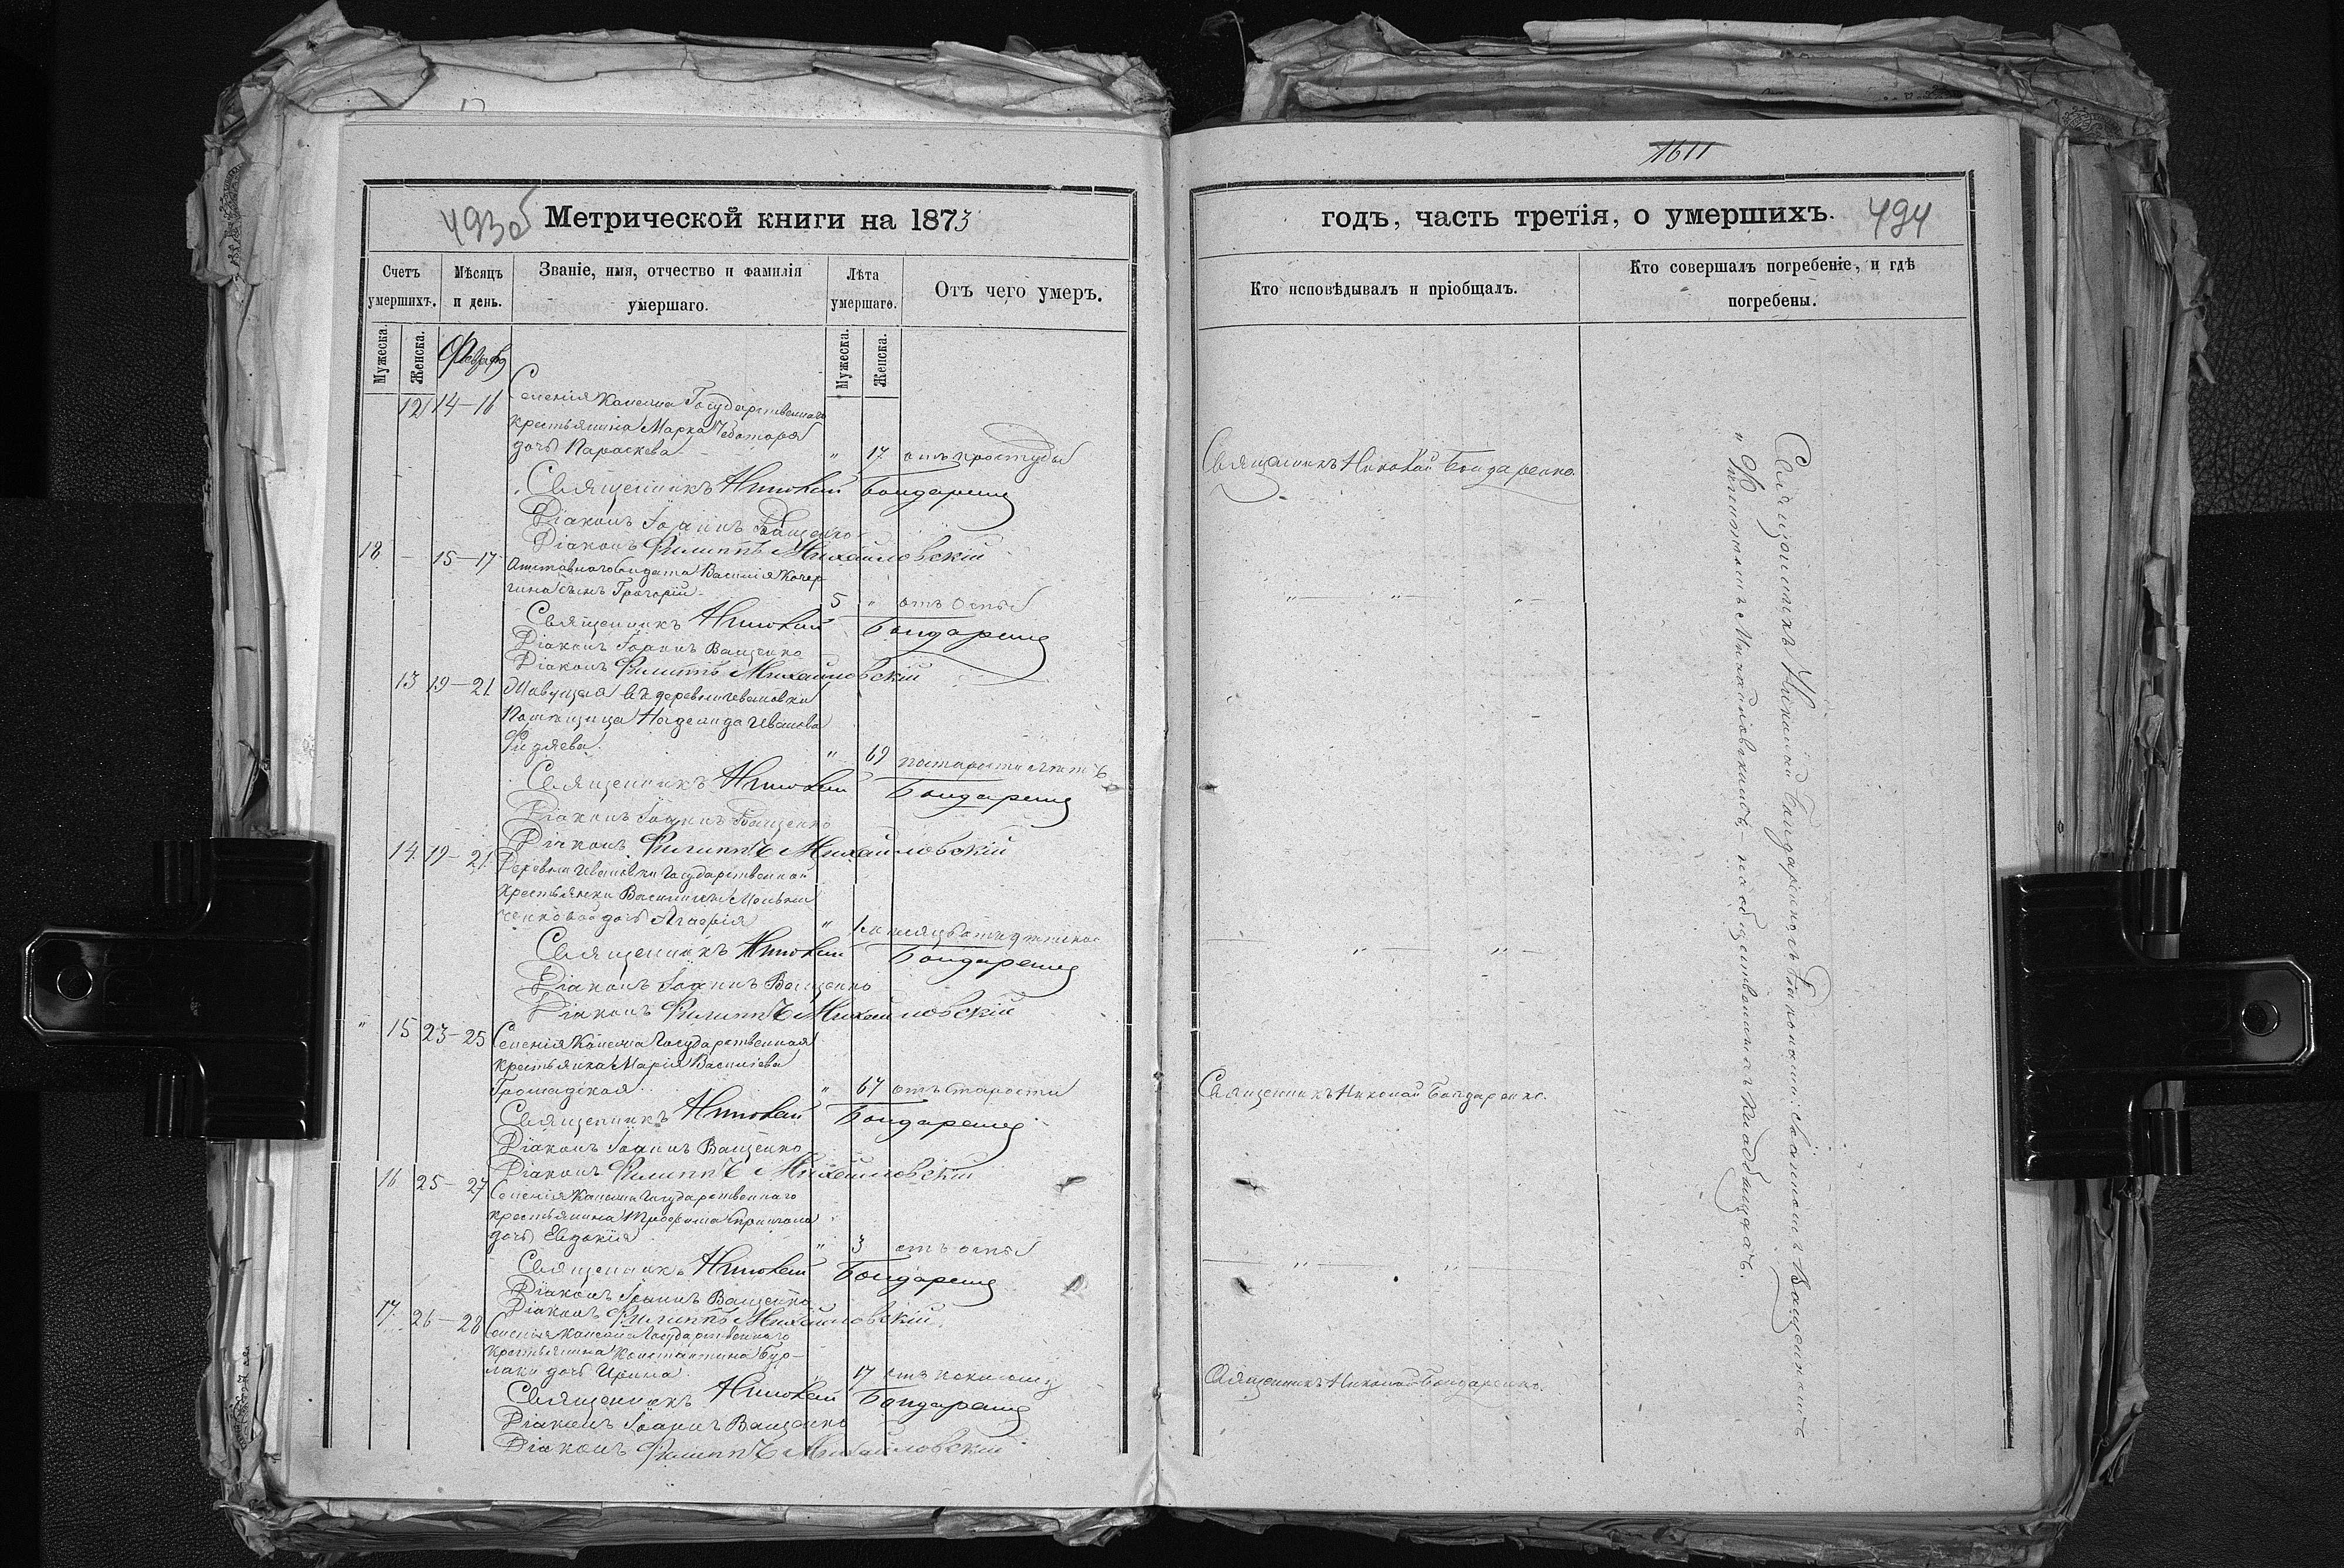 493об Метрической книги на 1873
Счетъ умершихъ.
Мѣсяцъ и день.
Званіе, имя, отчество и фамилія умершаго.
Лѣта умершаго.
Отъ чего умеръ.
Мужеска.
Женска.
Мужеска.
Женска.
12 14–16 Селенія Каменна Государственнаго
крестьянина Марка Чеботаря
дочь Параскева " 17 отъ простуды
Священникъ Николай Бондаренко
Діаконъ Іоаннъ Ващенко
Діаконъ Филиппъ Михайловскій
18 – 15–17 Отставного солдата Василія Кочер-
гина сынъ Григорій 5 " отъ оспы
Священникъ Николай Бондаренко
Діаконъ Іоаннъ Ващенко
Діаконъ Филиппъ Михайловскій
13 19–21 Живущая въ деревни Ивановки
Помѣщица Надежда Иванова
" 69 по старости лѣтъ
Священникъ Николай Бондаренко
Діаконъ Іоаннъ Ващенко
Діаконъ Филиппъ Михайловскій
14 19–21 Деревни Ивановки Государственной
крестьянки
дочь Агафія " 1
Священникъ Николай Бондаренко
Діаконъ Іоаннъ Ващенко
Діаконъ Филиппъ Михайловскій
" 15 23–25 Селенія Каменна Государственная
крестьянка Марія Василіева
Громадская " 67 отъ старости
Священникъ Николай Бондаренко
Діаконъ Іоаннъ Ващенко
Діаконъ Филиппъ Михайловскій
16 25–27 Селенія Каменна Государственнаго
крестьянина Трофима
дочь Евдокія " 3 отъ оспы
Священникъ Николай Бондаренко
Діаконъ Іоаннъ Ващенко
Діаконъ Филиппъ Михайловскій
17 26–28 Селенія Каменна Государственнаго
крестьянина Константина Бур-
лаки дочь Ирина 17 отъ
Священникъ Николай Бондаренко
Діаконъ Іоаннъ Ващенко
Діаконъ Филиппъ Михайловскій
1611
годъ, часть третія, о умершихъ. 494
Кто исповѣдывалъ и пріобщалъ.
Кто совершалъ погребеніе, и гдѣ погребены.
Священникъ Николай Бондаренко.
" " "
" "
Священникъ Николай Бондаренко.
" "
Священникъ Николай Бондаренко.
Священникъ Николай Бондаренко съ Діаконами: Іоанномъ Ващенкомъ
и Филиппомъ Михайловскимъ, на общественныхъ кладбищахъ.